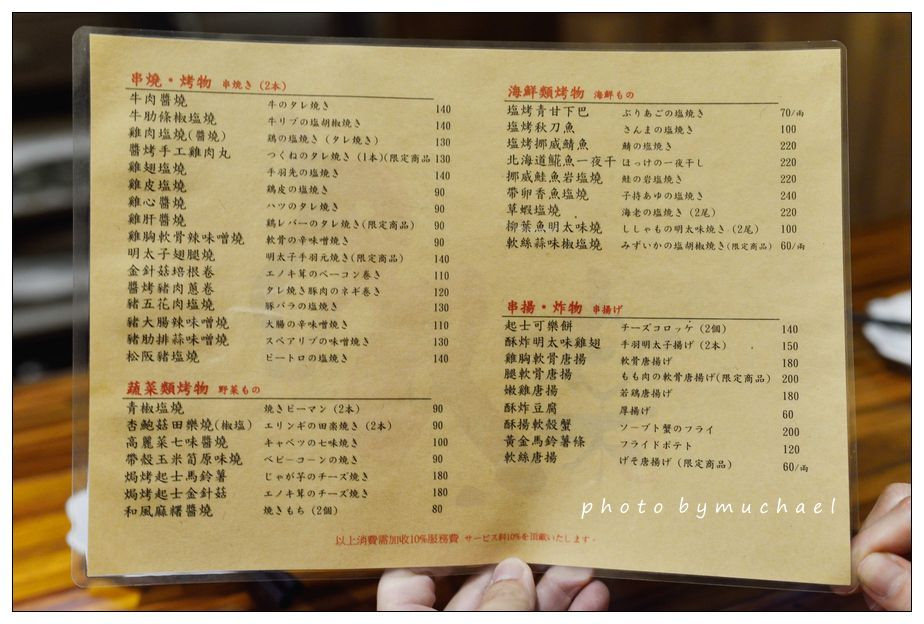 串燒・烤物 串焼き (2本)
牛肉醬燒 牛のタレ焼き 140
牛肋條椒塩燒 牛リブの塩胡椒焼き 140
雞肉塩燒(醬燒) 鶏の塩焼き (タレ焼き) 130
醬烤手工雞肉丸 つくねのタレ焼き (1本)(限定商品 130
雞翅塩燒 手羽先の塩焼き 140
雞皮塩燒 鶏皮の塩焼き 90
雞心醬燒 ハツのタレ焼き 90
雞肝醬燒 鶏レバーのタレ焼き(限定商品) 90
雞胸軟骨辣味噌燒 軟骨の辛味噌焼き 90
明太子翅腿燒 明太子手羽元焼き(限定商品) 140
金針菇培根卷 エノキ茸のベーコン巻き 110
醬烤豬肉蔥卷 タレ焼き豚肉のネギ巻き 120
豬五花肉塩燒 豚バラの塩焼き 130
豬大腸辣味噌燒 大腸の辛味噌焼き 110
豬肋排蒜味噌燒 スペアリブの味噌焼き 130
松阪豬塩燒 ピートロの塩焼き 140
蔬菜類烤物 野菜もの
青椒塩燒 焼きピーマン (2本) 90
杏鮑菇田樂燒(椒塩) エリンギの田楽焼き (2本) 90
高麗菜七味醬燒 キャベツの七味焼き 100
帶殼玉米筍原味燒 ベビーコーンの焼き 90
焗烤起士馬鈴薯 じゃが芋のチーズ焼き 180
焗烤起士金針菇 エノキ茸のチーズ焼き 180
和風麻糬醬燒 焼きもち (2個) 80
海鮮類烤物 海鮮もの
塩烤青甘下巴 ぶりあごの塩焼き 70/兩
塩烤秋刀魚 さんまの塩焼き 100
塩烤挪威鯖魚 鯖の塩焼き 220
北海道䱵魚一夜干 ほっけの一夜干し 220
挪威鮭魚岩塩燒 鮭の岩塩焼き 220
帶卵香魚塩燒 子持あゆの塩焼き 240
草蝦塩燒 海老の塩焼き (2尾) 220
柳葉魚明太味燒 ししゃもの明太味焼き (2尾) 100
軟絲蒜味椒塩燒 みずいかの塩胡椒焼き(限定商品) 60/兩
串揚・炸物 串揚げ
起士可樂餅 チーズコロッケ (2個) 140
酥炸明太味雞翅 手羽明太子揚げ (2本) 150
雞胸軟骨唐揚 軟骨唐揚げ 180
腿軟骨唐揚 もも肉の軟骨唐揚げ(限定商品) 200
嫩雞唐揚 若鶏唐揚げ 180
酥炸豆腐 厚揚げ 60
酥揚軟殼蟹 ソープト蟹のフライ 200
黃金馬鈴薯條 フライドポテト 120
軟絲唐揚 げそ唐揚げ (限定商品) 60/兩
photo bymuchael
以上消費需加收10%服務費 サービス料10%を頂戴いたします。